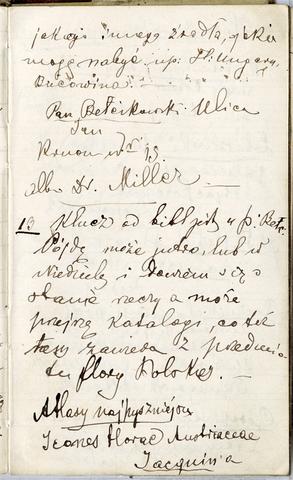 jakiego innego źródła, jakie
mogę nabyć np: Fl. Ungary,
Bukowina. —
Pan Bełcikowski Ulica
Jan
Kanon
alb. Dr. Miller
13 Klucz od biblijoty u p. Bełc.
Pójdę może jutro, lub w
Niedzielę i dowiem się o
stanie rzeczy a może
przejrzę Katalogi, co też
tam zawiera z przedmio
tu flory Polskiej. —
Atlasy najpyszniejsze
Icones Florae Austriaceae
Jacquin'a